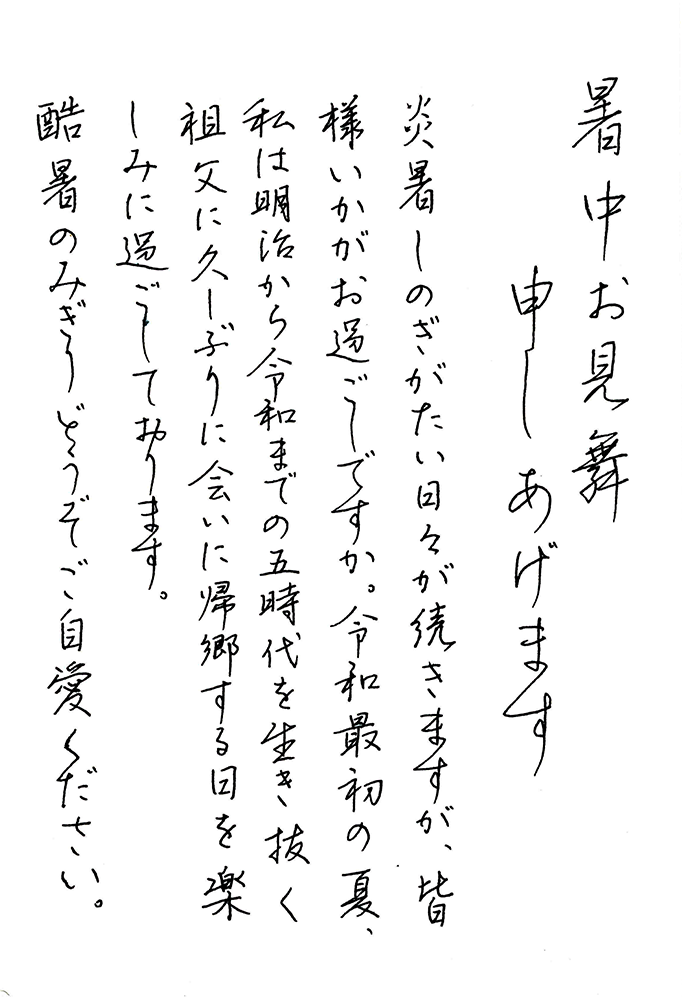 暑中お見舞
申しあげます
炎暑しのぎがたい日々が続きますが、皆
様いかがお過ごしですか。令和最初の夏、
私は明治から令和までの五時代を生き抜く
祖父に久しぶりに会いに帰郷する日を楽
しみに過ごしております。
酷暑のみぎりどうぞご自愛ください。